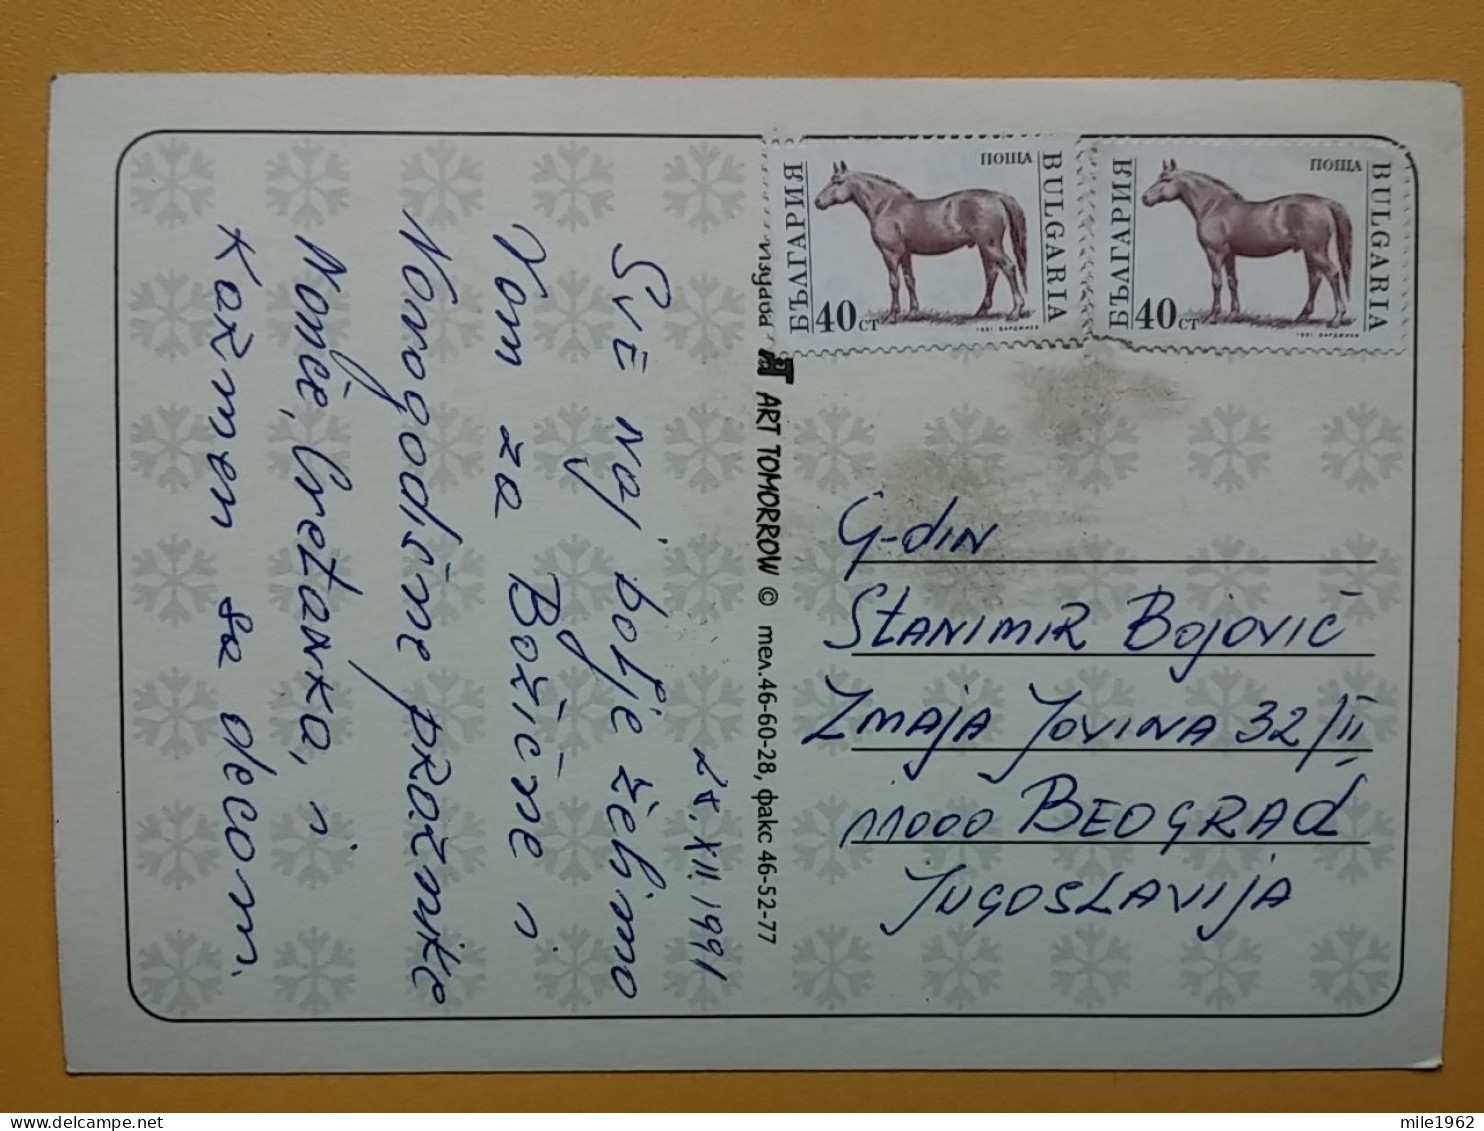 БЪЛГАРИЯ
ПОЩА
BULGARIA
40 СТ
1991
БЪЛГАРИЯ
ПОЩА
BULGARIA
40 СТ
1991
ART TOMORROW © тел.46-60-28, факс 46-52-77
28. XII 1991
Sve naj bolje želimo
Vam za Božićne i
Novogodišne praznike
Cvetanka, i
sa decom.
G-din
Stanimir Bojović
Zmaja Jovina 32/II
11000 Beograd
Jugoslavija
mile1962